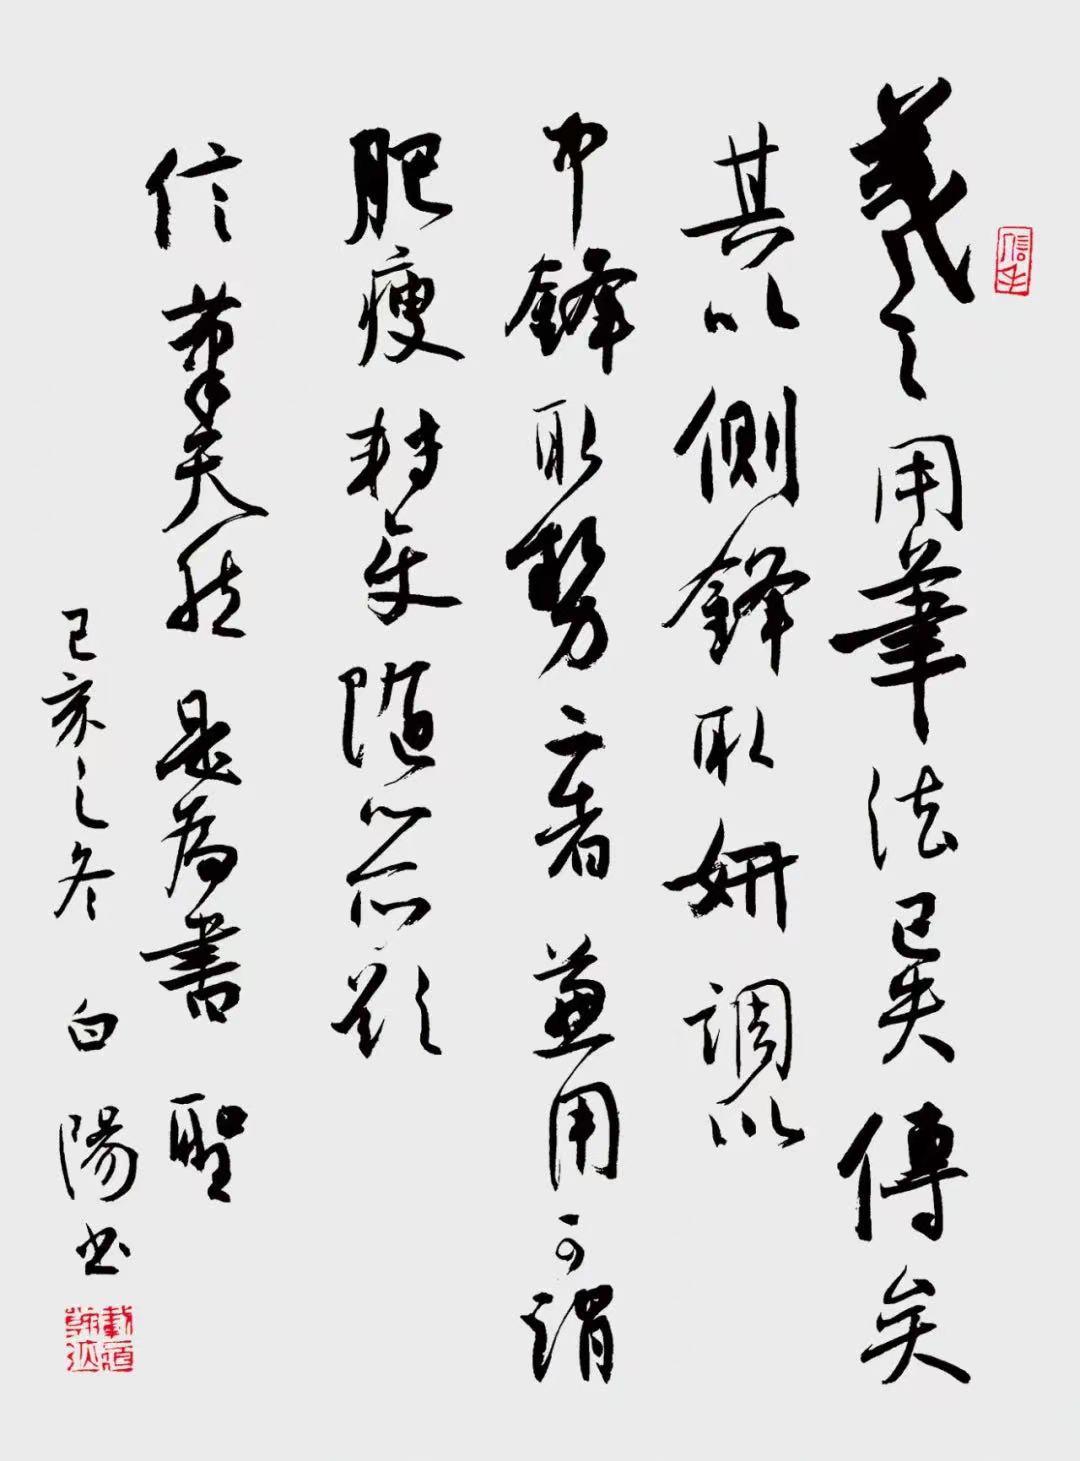 羲之用筆法已失傳矣
其以側鋒取妍調以
中鋒取勢二者兼用可謂
肥瘦轉變隨心所欲
信筆天然是為書聖
己亥之冬白陽书
信手